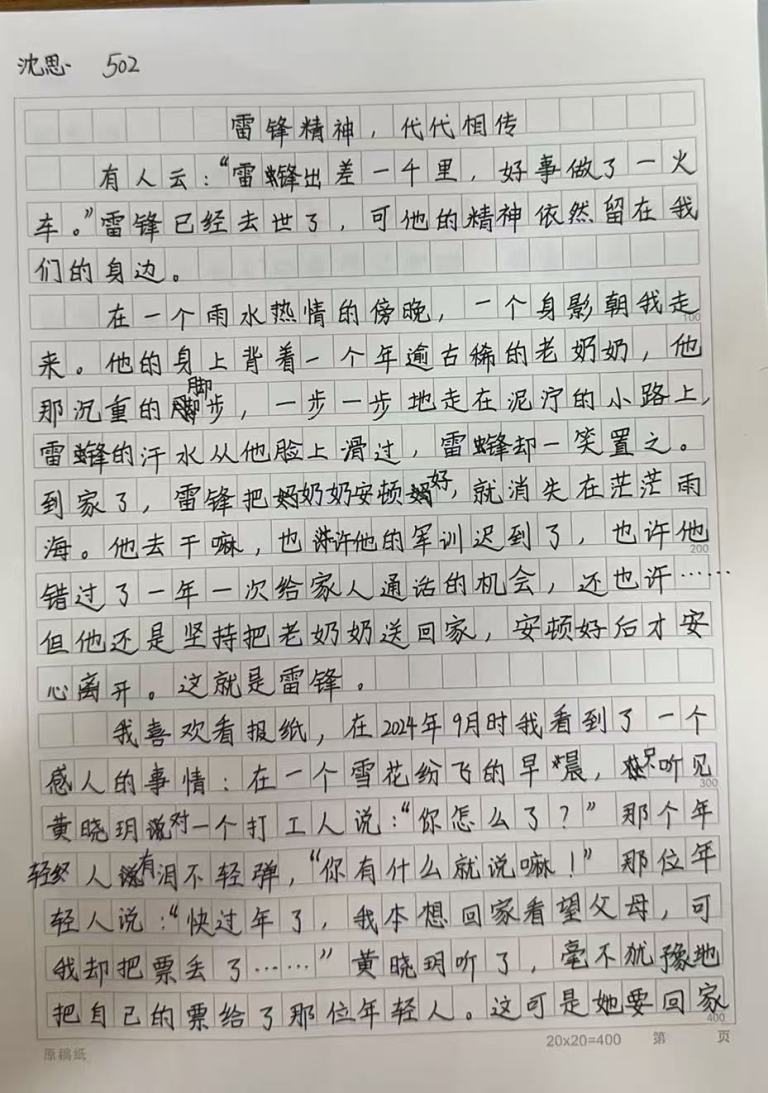 沈思 502
雷锋精神，代代相传
有人云：“雷锋出差一千里，好事做了一火
车。”雷锋已经去世了，可他的精神依然留在我
们的身边。
在一个雨水热情的傍晚，一个身影朝我走
100
来。他的身上背着一个年逾古稀的老奶奶，他
那沉重的脚步，一步一步地走在泥泞的小路上，
雷锋的汗水从他脸上滑过，雷锋却一笑置之。
到家了，雷锋把奶奶安顿好，就消失在茫茫雨
海。他去干嘛，也许他的军训迟到了，也许他
200
错过了一年一次给家人通话的机会，还也许……
但他还是坚持把老奶奶送回家，安顿好后才安
心离开。这就是雷锋。
我喜欢看报纸，在2024年9月时我看到了一个
感人的事情：在一个雪花纷飞的早晨，只听见
300
黄晓玥对一个打工人说：“你怎么了？”那个年
轻人有泪不轻弹，“你有什么就说嘛！”那位年
轻人说：“快过年了，我本想回家看望父母，可
我却把票丢了……”黄晓玥听了，毫不犹豫地
把自己的票给了那位年轻人。这可是她要回家
400
原稿纸 20x20=400 第 页